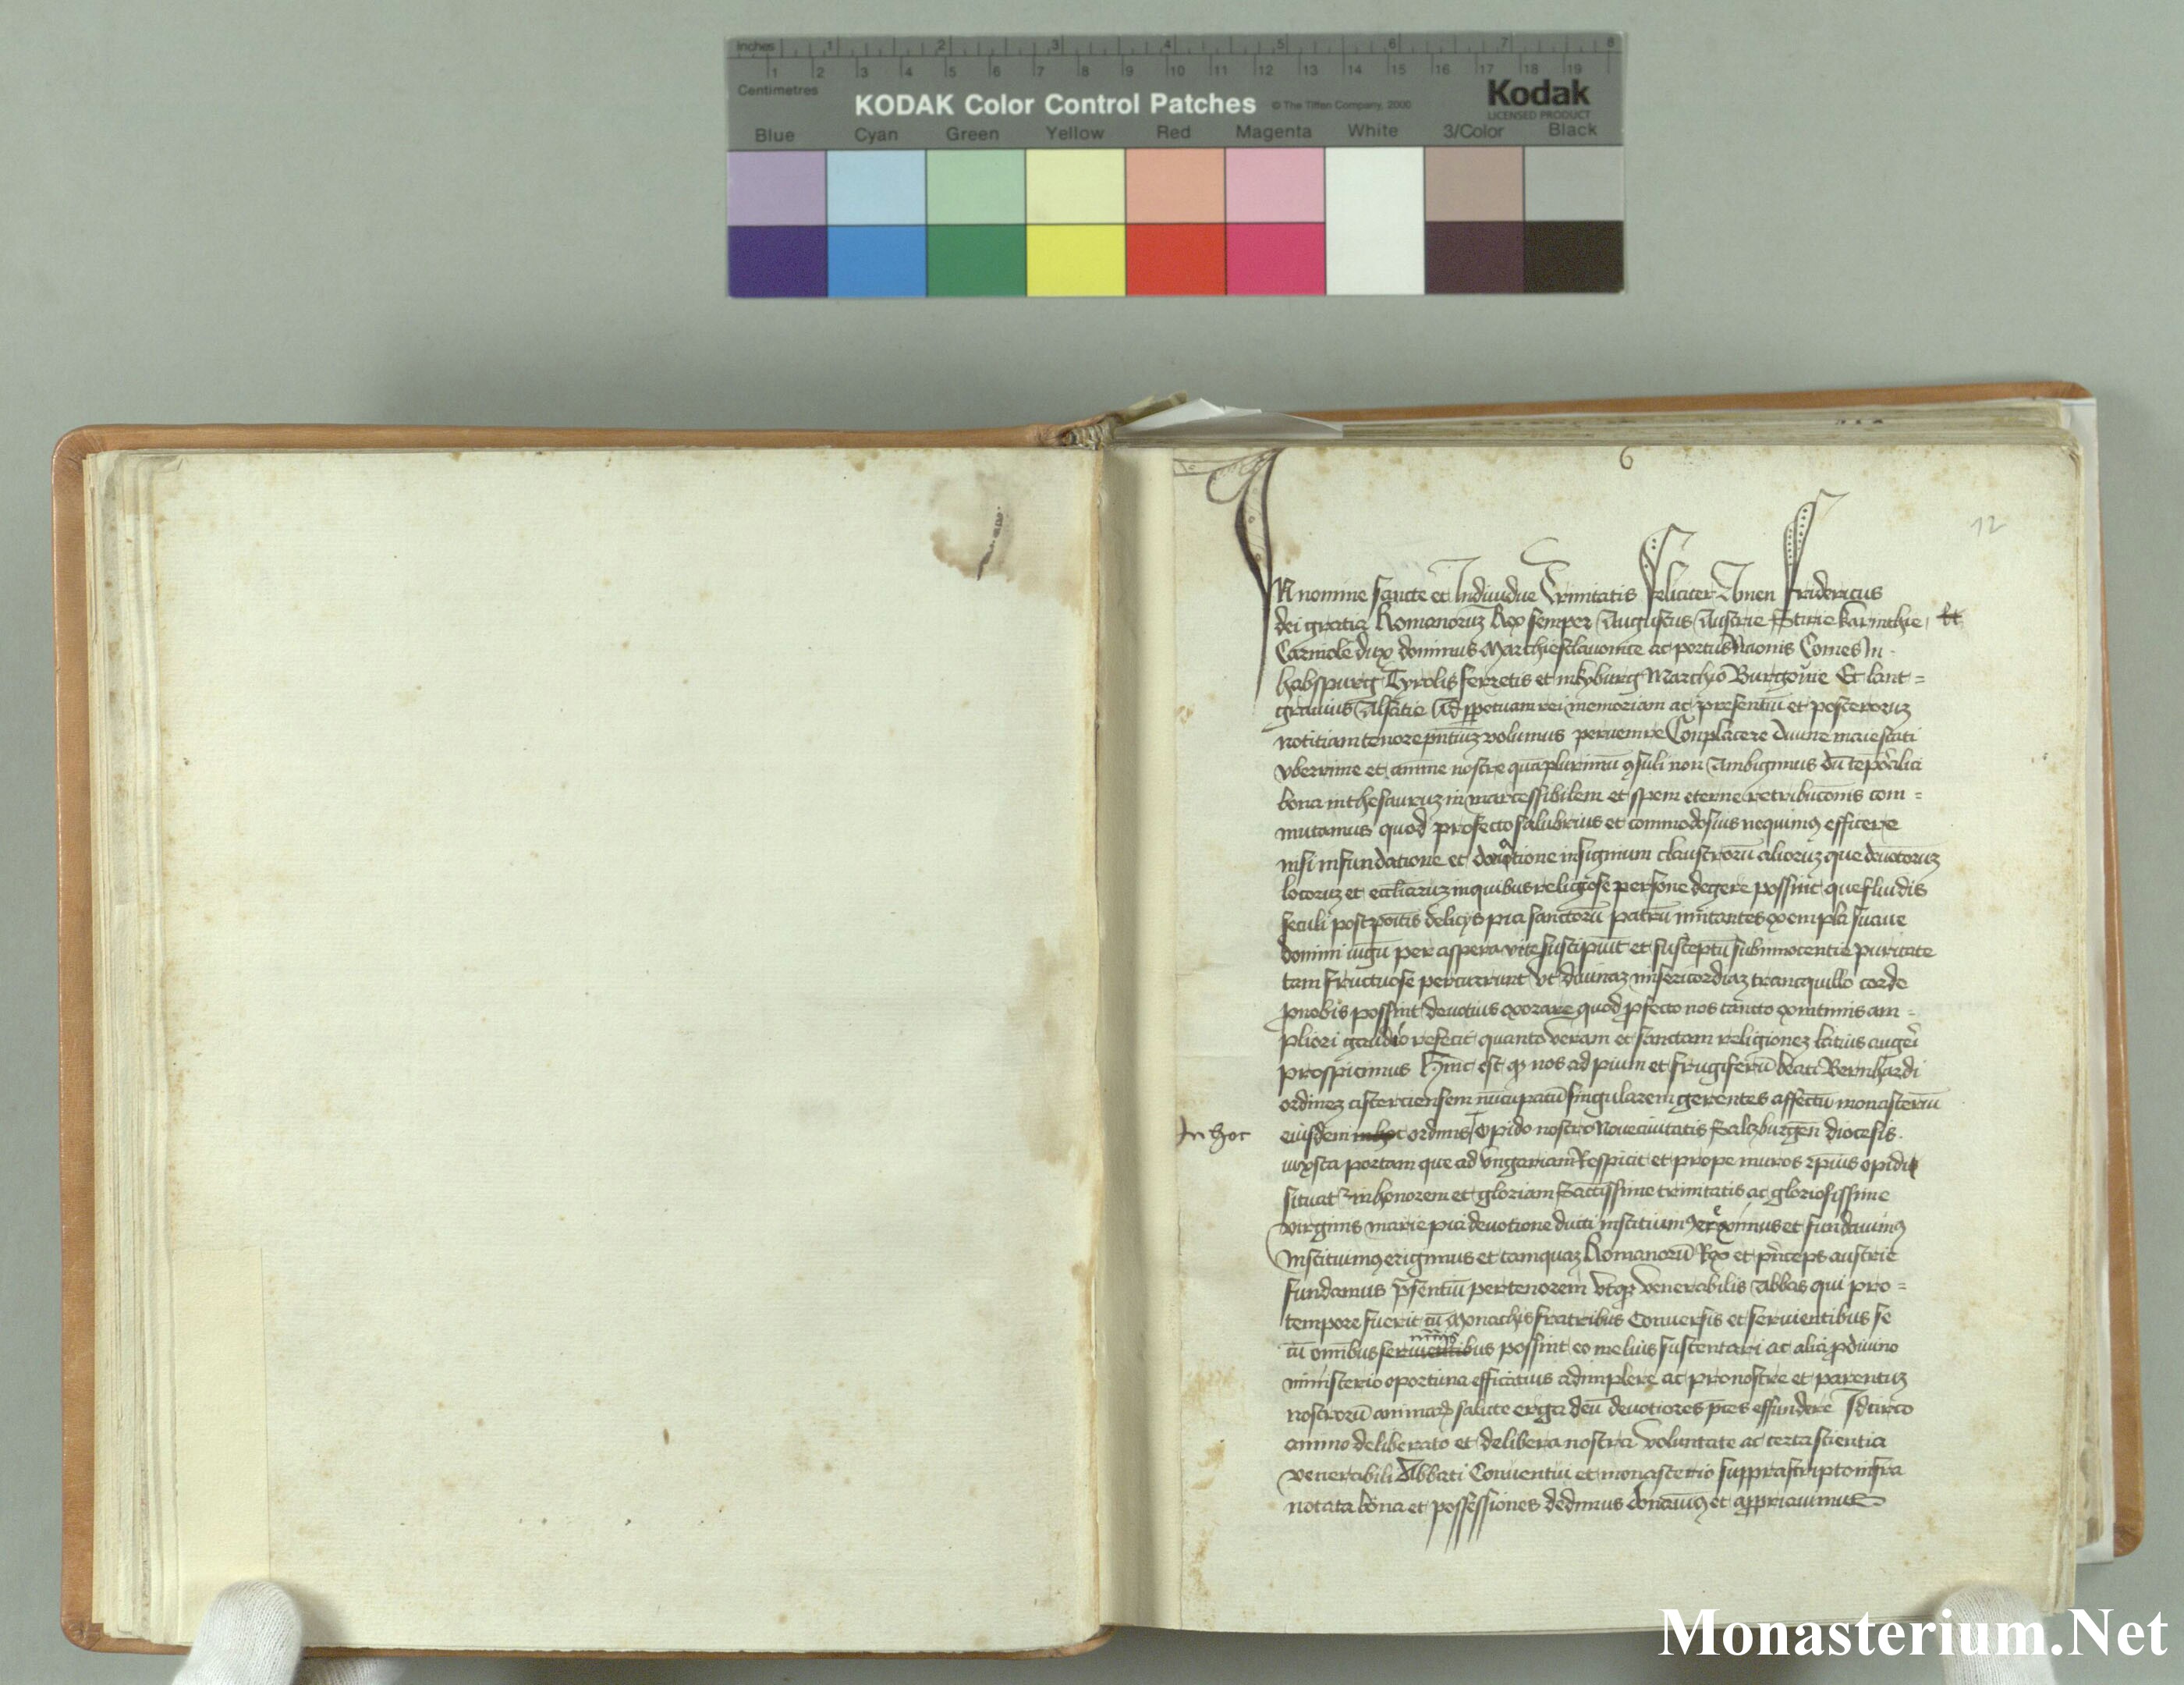 inches 1 2 3 4 5 6 7 8
1 2 3 4 5 6 7 8 9 10 11 12 13 14 15 16 17 18 19
Centimetres
KODAK Color Control Patches © The Tiffen Company, 2000 Kodak
LICENSED PRODUCT
Blue Cyan Green Yellow Red Magenta White 3/Color Black
6
12
IN nomine sancte et Indiuidue Trinitatis Feliciter Amen Fridericus
dei gratia Romanoruz Rex semper Augustus Austrie Stirie karinthie Et
Carniole dux dominus Marchiesclauonice ac portus Naonis Comes In
habspurg Tyrolis ferretis et in kyburg Marchyo Burgouie Et lant=
grauius Alsatie Ad ppetuam rei memoriam ac presentiu et posteroruz
notitiam tenore pntiuz volumus peruenire Conplacere diuine maiestati
vberrime et anime nostre quaplurimu 9suli non Ambigimus du tepoalia
bona in thesauruz inmarcessibilem et spem eterne retribuconis com=
mutamus quod profecto salubrius et commodosius nequim9 efficere
nisi in fundatione et dotatione insignium claustroru alioruz que deuotoruz
locoruz et eccliaruz in quibus religiose persone degere possint que fluidis
seculi postpoitis delicijs pia sanctoru patru imitantes exempla suaue
domini iugu per aspera vite suscipiut et susceptu sub innocentie puritate
tam fructuose percurrunt vt diuinaz misericordiaz tranquillo corde
pnobis possint deuotius exorare quod pfecto nos tanto ex intimis am=
pliori gaudio refecit quanto veram et sanctam religionez latius augeri
prospicimus Hinc est q nos ad pium et frugiferu beati Bernhardi
ordinez cisterciensem nucupatu singularem gerentes affectu monasteriu
In hoc eiusdem inhoc ordinis opido nostro Noueciuitatis Salczburgen diocesis
iuxsta portam que ad Vngariam Respicit et prope muros ipius opidi
situat in honorem et gloriam Sactissime trinitatis ac gloriosissime
virginis marie pia deuotione ducti instituim9 ereximus et fundauim9
Instituim9 erigimus et tamquaz Romanoru Rex et princeps austrie
fundamus psentiu per tenorem vtq venerabilis Abbas qui pro=
tempore fuerit cu Monachis fratribus Conuersis et seruientibus se
nimis
cu omibus seruientibus possint eo melius sustentari ac alia pdiuino
ministerio oportuna efficatius adimplere ac pro nostre et parentuz
nostroru animar salute erga deu deuotiores pces effundere Idcirco
animo deliberato et delibera nostra voluntate ac certa scientia
venerabili Abbati Conuentui et monasterio supprascripto infra
notata bona et possessiones dedimus donauim9 et appriauimus
Monasterium.Net